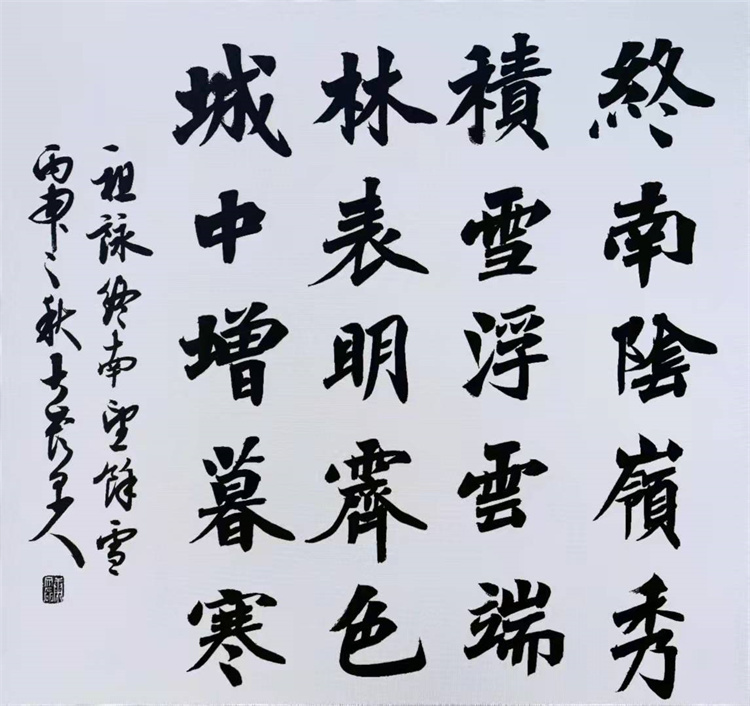 終南陰嶺秀
積雪浮雲端
林表明霽色
城中增暮寒
祖詠終南望餘雪
丙申之秋人